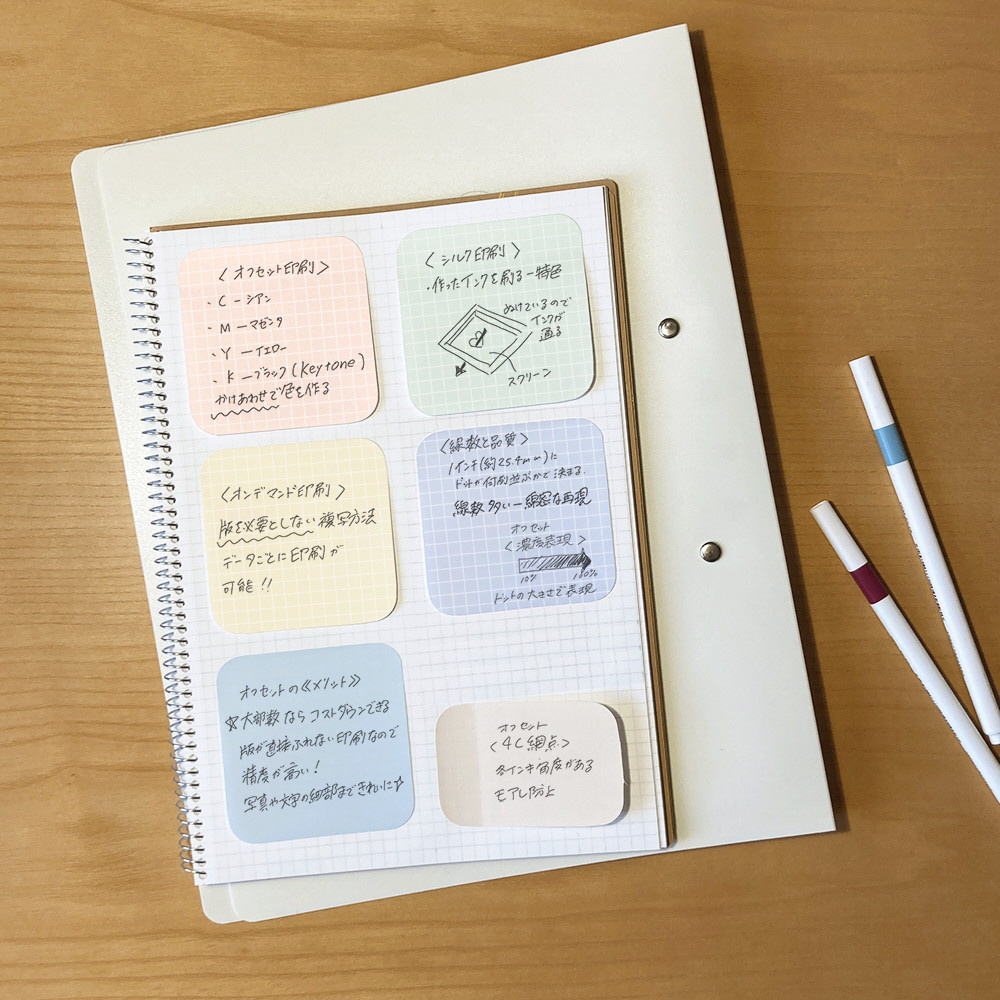 〈オフセット印刷〉
・C ー シアン
・M ー マゼンタ
・Y ー イエロー
・K ー ブラック(Keytone)
かけあわせで色を作る
〈シルク印刷〉
・作ったインクを刷る ー 特色
ぬけているので
インクが
通る
スクリーン
〈オンデマンド印刷〉
版を必要としない複写方法
データごとに印刷が
可能!!
〈線数と品質〉
1インチ(約25.4mm)に
ドットが何列並ぶかで決まる.
線数多い ー 綿密な再現
オフセット
〈濃度表現〉
10% 100%
ドットの大きさで表現
オフセットの《メリット》
☆大部数ならコストダウンできる
版が直接ふれない印刷なので
精度が高い!
写真や文字の細部まできれいに☆
オフセット
〈4C網点〉
各インキ角度がある
モアレ防止